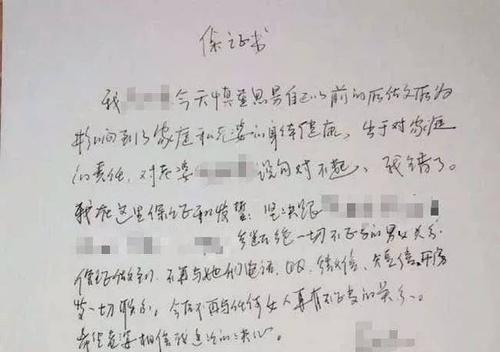 保证书
我 今天慎重思考自己以前的所做所为
影响到了家庭和老婆的身体健康,出于对家庭
的责任,对老婆 说句对不起,我错了。
我在这里保证和发誓:坚决跟
断绝一切不正当的男女关系
保证做到不再与她们电话、QQ、微信、短信、开房
等一切联系,今后不再与任何女人再有不正当的关系。
希望老婆相信我这次的决心。